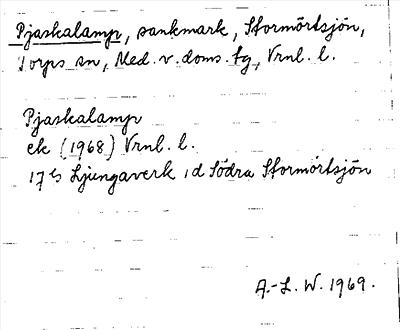 Pjaskalamp, sankmark, Stormörtsjön,
Torps sn, Med. v. doms. tg, Vrnl. l.
Pjaskalamp
ek (1968) Vrnl. l.
17 G Ljungaverk, id Södra Stormörtsjön
A.-L. W. 1969.